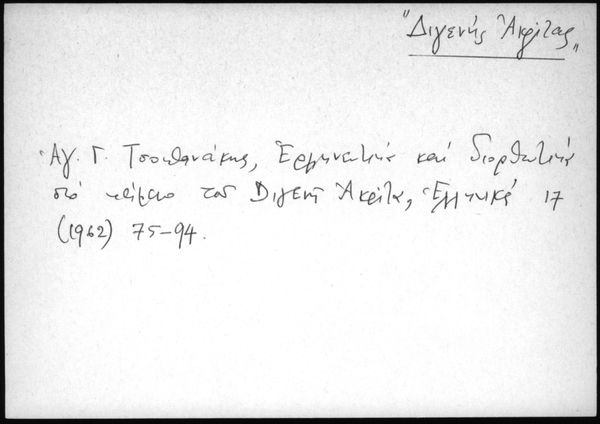 "Διγενής Ἀκρίτας"
Ἀγ. Γ. Τσοπανάκης, Ἑρμηνευτικά καί διορθωτικά
στό κείμενο τοῦ Διγενῆ Ἀκρίτα, Ἑλληνικά 17
(1962) 75-94.